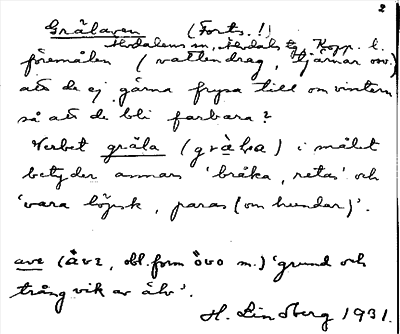 2
Grälaven (Forts.!)
Älvdalens sn, Älvdals tg, Kopp. l.
föremålen (vattendrag, tjärnar osv.)
att de ej gärna frysa till om vintern
så att de bli farbara?
Verbet gräla (gràla) i målet
betyder annars 'bråka, retas' och
'vara löpsk, paras (om hundar)'.
ave (àvɛ, obl. form òvo m.) 'grund och
trång vik av älv'.
H. Lindberg 1931.